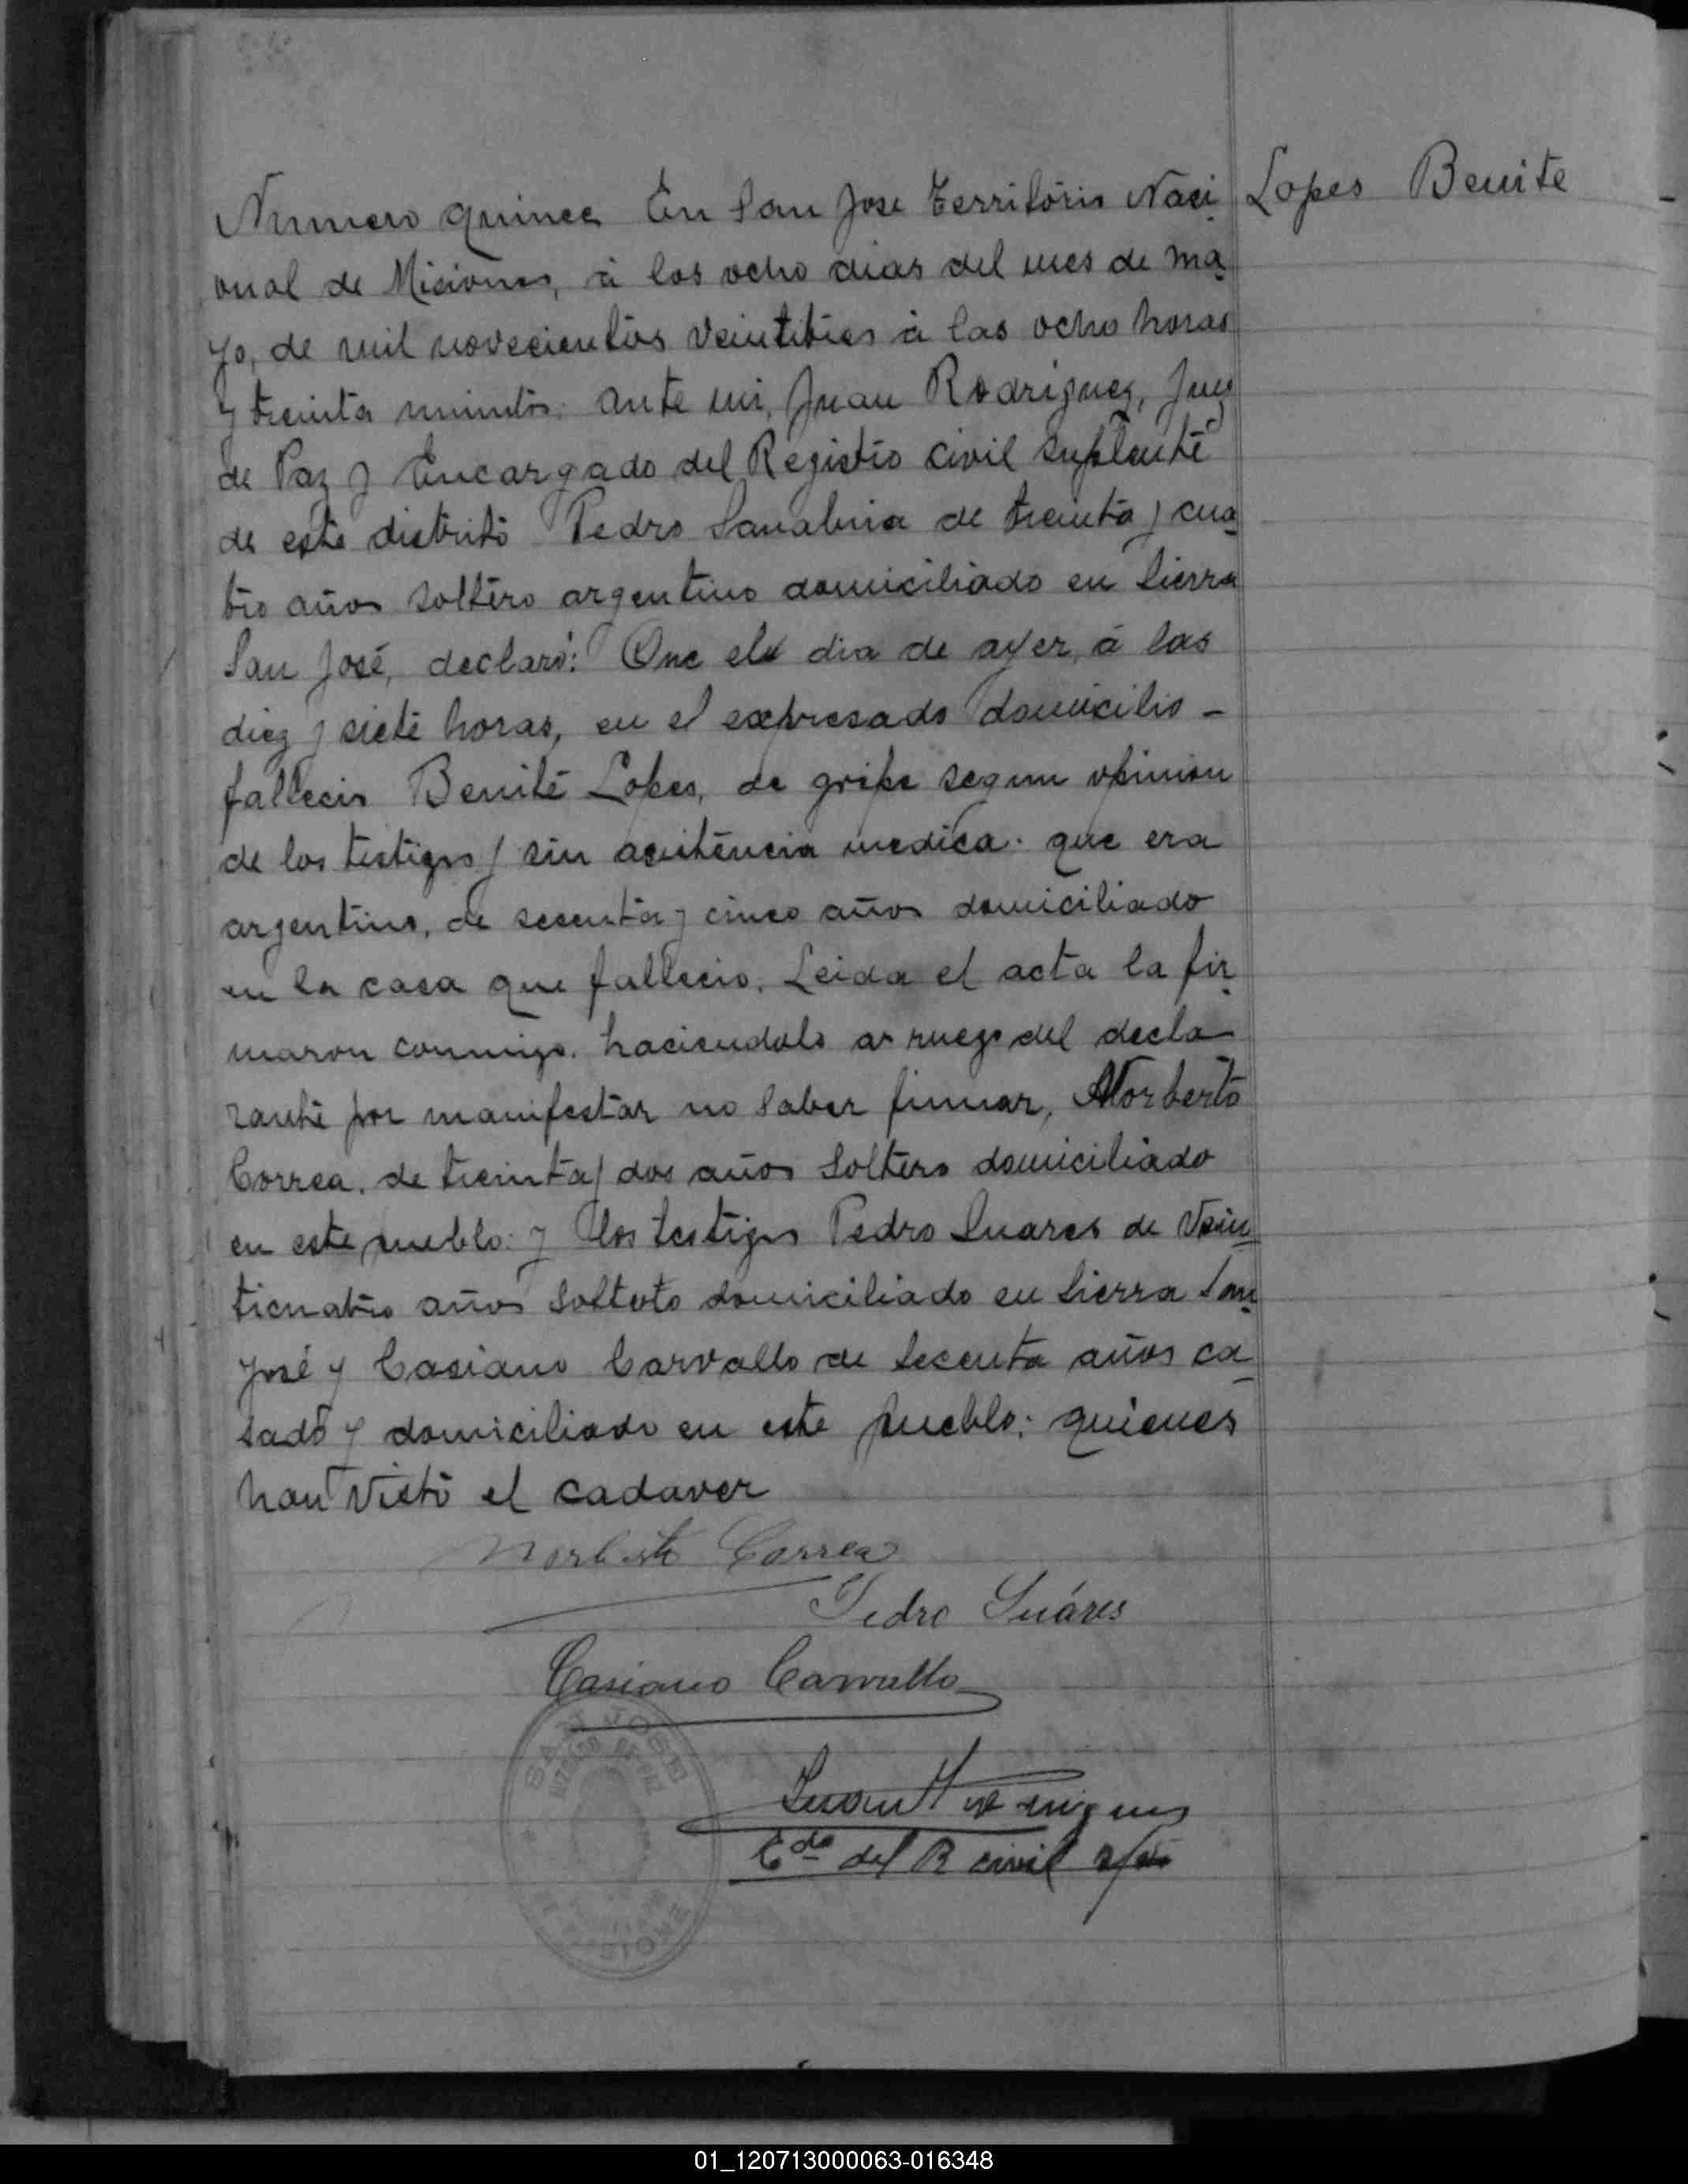 Numero quince En San Jose Territorio Naci
Lopes Benite
onal de Misiones, á los ocho dias del mes de ma
yo, de mil novecientos veintitres á las ocho horas
y treinta minutos: ante mi, Juan Rodriguez, Juez
de Paz y Encargado del Registro civil suplente
de este distrito Pedro Sanabria de treinta y cua
tro años soltero argentino domiciliado en Sierra
San José, declaró: Que el dia de ayer, á las
diez y siete horas, en el expresado domicilio -
fallecio Benite Lopes, de gripe segun opinion
de los testigos y sin asistencia medica. que era
argentino, de sesenta y cinco años domiciliado
en la casa que fallecio. Leida el acta la fir
maron conmigo. haciendolo a ruego del decla
rante por manifestar no saber firmar, Norberto
Correa. de treinta y dos años soltero domiciliado
en este pueblo: y los testigos Pedro Suares de vein
ticuatro años soltero domiciliado en Sierra San
José y Casiano Carvallo de secenta años ca
sado y domiciliado en este pueblo; quienes
han visto el cadaver
Norberto Correa
Pedro Suáres
Casiano Carvallo
SAN JOSE
JUZGADO DE PAZ
Juan Rodriguez
Edo del R civil
01_120713000063-016348